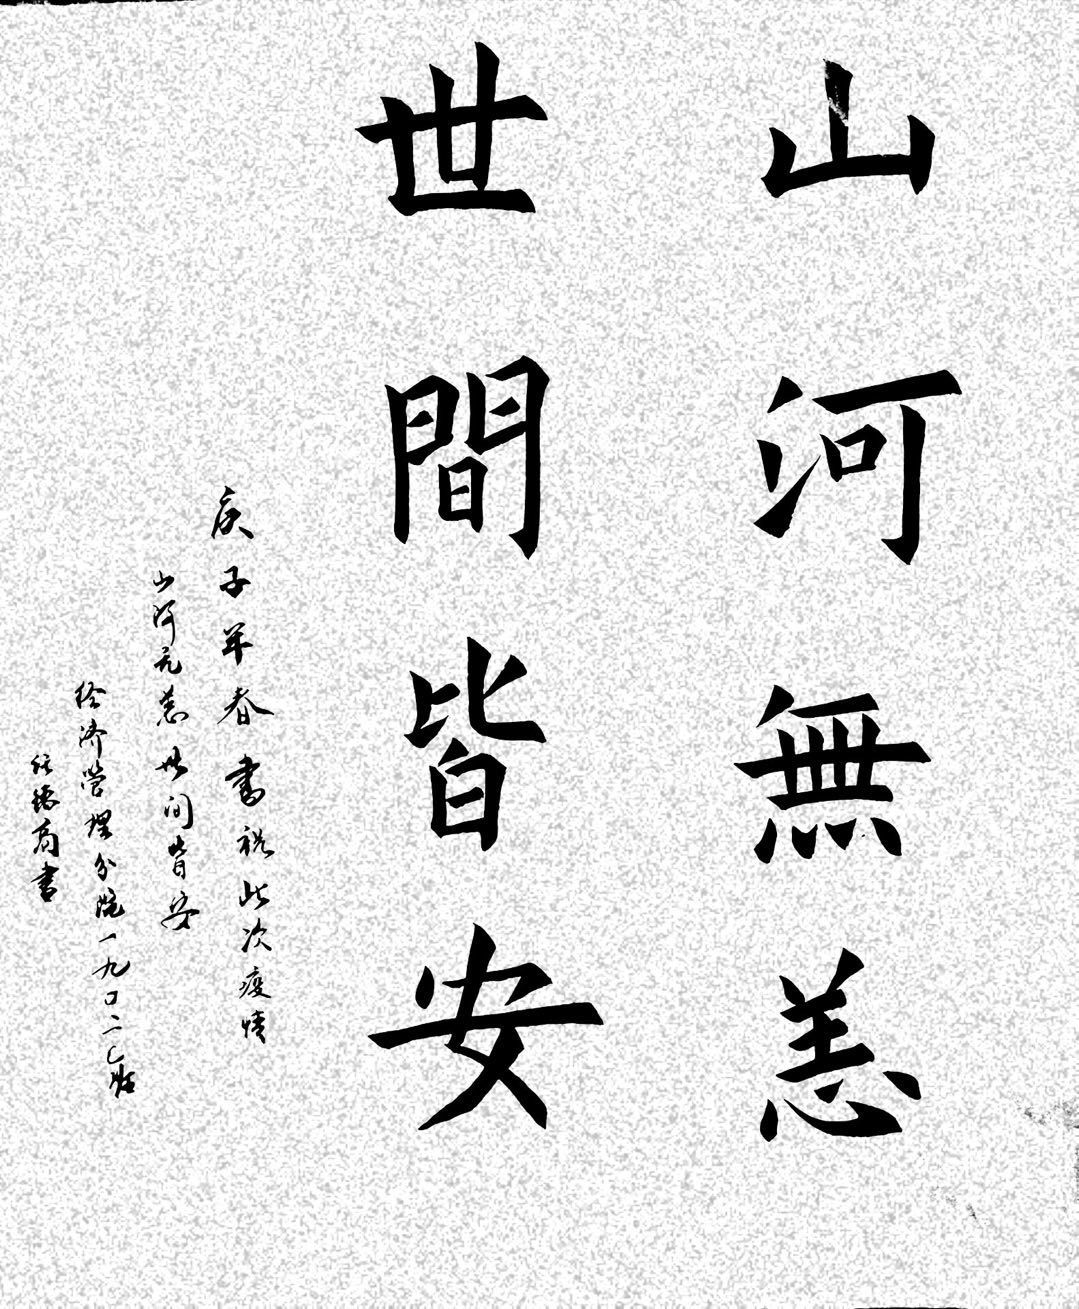 山河無恙
世間皆安
庚子年春書祝此次疫情
山河无恙世间皆安
经济管理分院一九〇二乙班
任 高書